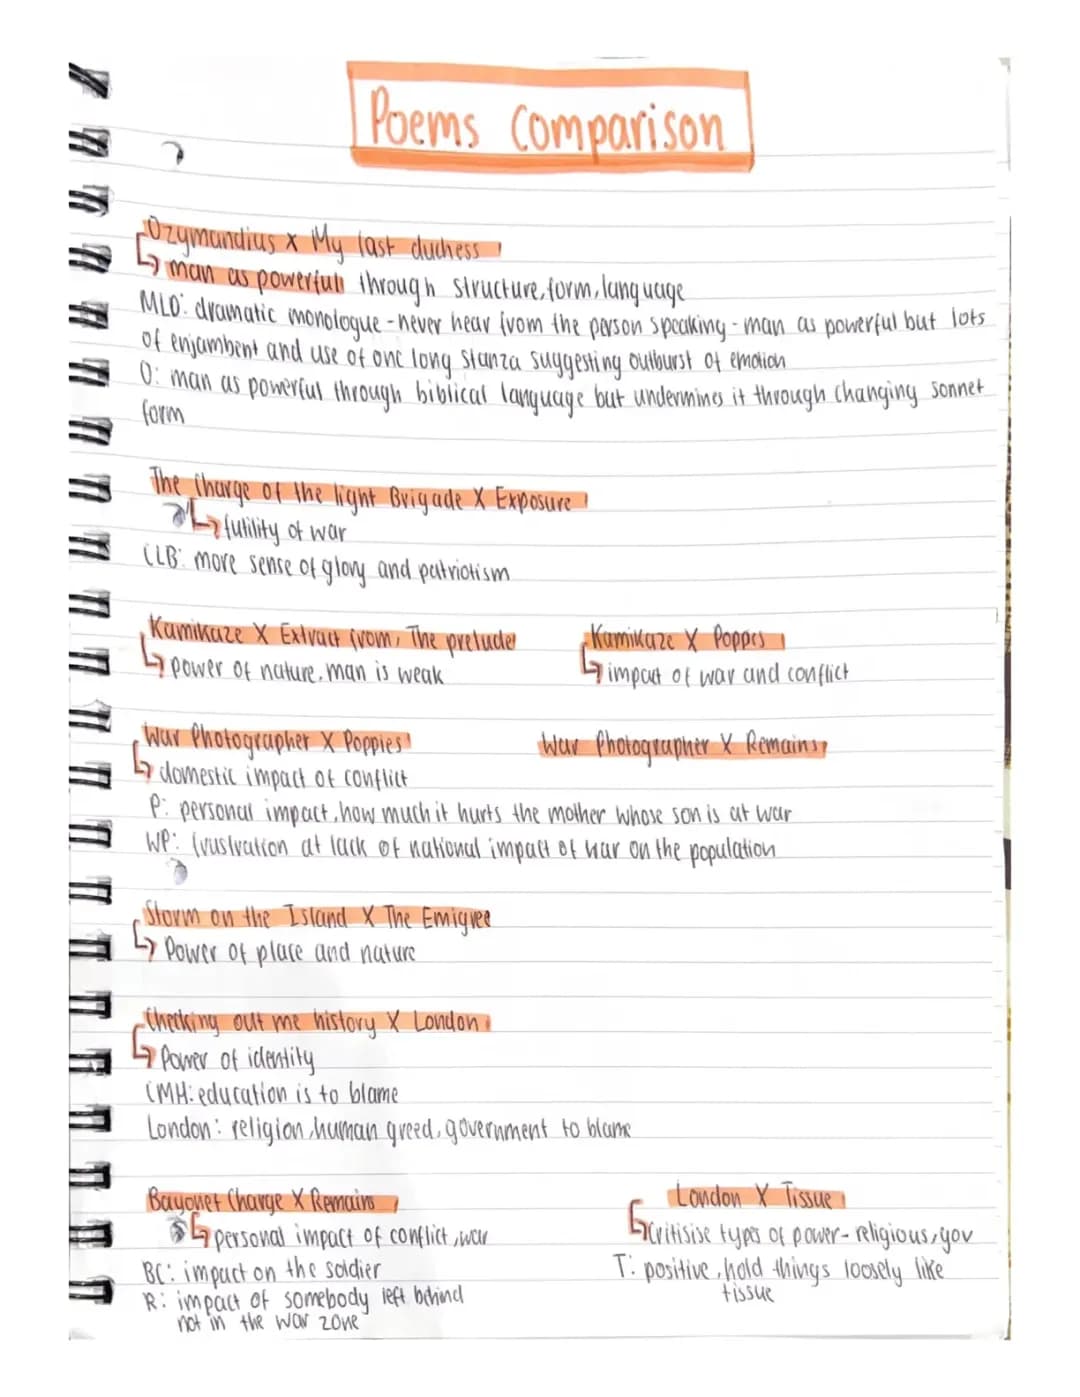 Poems Comparison
Ozymandius x My last duchess
↳ man as powerful through structure, form, language
MLD: dramatic monologue - never hear from the person speaking - man as powerful but lots
of enjambent and use of one long stanza suggesting outburst of emotion
O: man as powerful through biblical language but undermines it through changing sonnet
form
The Charge of the light Brigade X Exposure
↳ futility of war
CLB: more sense of glory and patriotism
Kamikaze X Extract from, The prelude
↳ power of nature, man is weak
Kamikaze X Poppies
↳ impact of war and conflict
War Photographer X Poppies
↳ domestic impact of conflict
War Photographer X Remains
P: personal impact, how much it hurts the mother whose son is at war
WP: frustration at lack of national impact of war on the population
Storm on the Island X The Emigree
↳ Power of place and nature
Checking out me history X London
↳ Power of identity
CMH: education is to blame
London: religion, human greed, government to blame
Bayonet Charge X Remains
↳ personal impact of conflict, war
BC: impact on the soldier
R: impact of somebody left behind
not in the war zone
London X Tissue
↳ Critisise types of power - religious, gov
T: positive, hold things loosely like
tissue